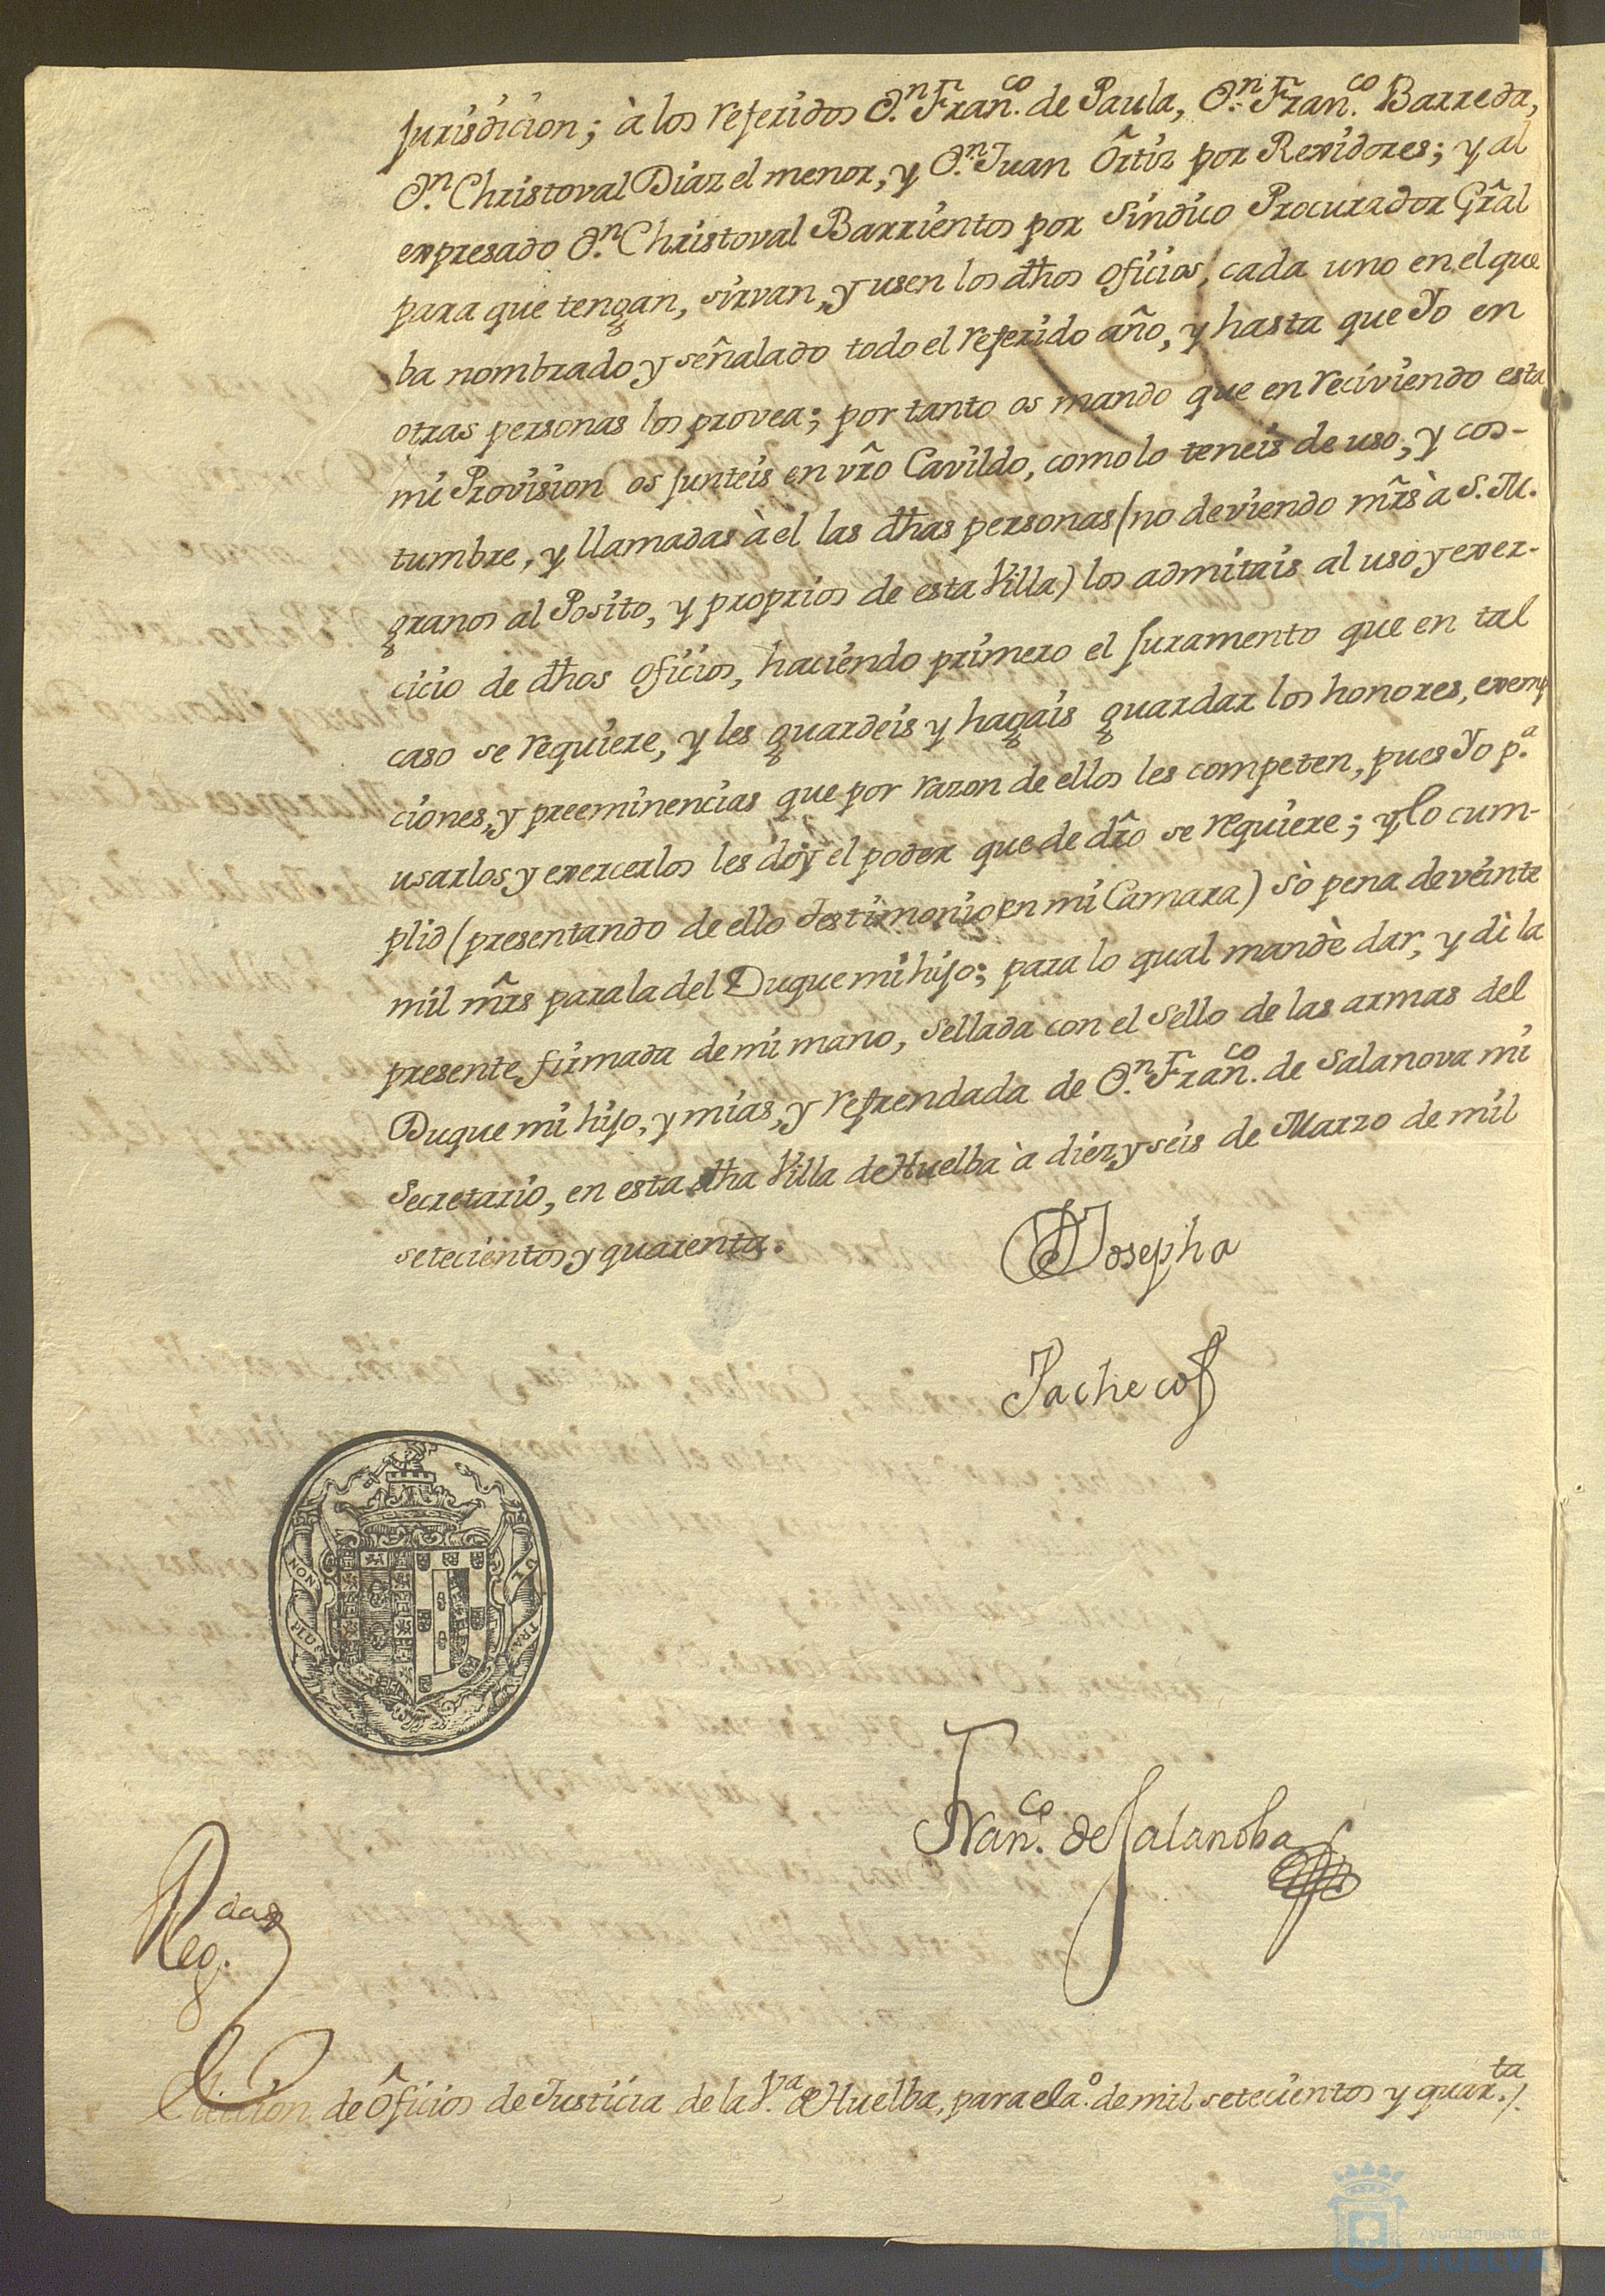 jurisdicion; à los referidos D.n Fran.co de Paula, D.n Fran.co Barreda,
D.n Christoval Diaz el menor, y D.n Juan Ôrtiz por Rexidores; y al
expresado D.n Christoval Barrientos por Sindico Procurador Grâl
para que tengan, sirvan, y usen los dhos oficios, cada uno en el que
ba nombrado y señalado todo el referido año, y hasta que Yo en
otras personas los provea; por tanto os mando que en reciviendo esta
mi Provision os junteis en vrô Cavildo, como lo teneis de uso, y cos-
tumbre, y llamadas à el las dhas personas (no deviendo mrs̃ à S. M.
granos al Posito, y proprios de esta Villa) los admitais al uso y exer-
cicio de dhos oficios, haciendo primero el juramento que en tal
caso se requiere, y les guardeis y hagais guardar los honores, exemp
ciones, y preeminencias que por razon de ellos les competen, pues Yo p.a
usarlos y exercerlos les doy el poder que de drô se requiere; y lo cum-
plid (presentando de ello testimonio en mi Camara) sò pena de veinte
mil mrs̃ para la del Duque mi hijo; para lo qual mandè dar, y dì la
presente firmada de mi mano, sellada con el sello de las armas del
Duque mi hijo, y mias, y refrendada de D.n Fran.co de Salanova mi
Secretario, en esta dha Villa de Huelba à diez y seis de Marzo de mil
setecientos y quarenta.
Josepha
Pacheco
NON
PLU
UL
TRA
Fran.co de Salanoba
Reg.daas
Eleccion de Ôficios de Justicia de la V.a de Huelba, para el a.o de mil setecientos y quar.ta
Ayuntamiento de
HUELVA